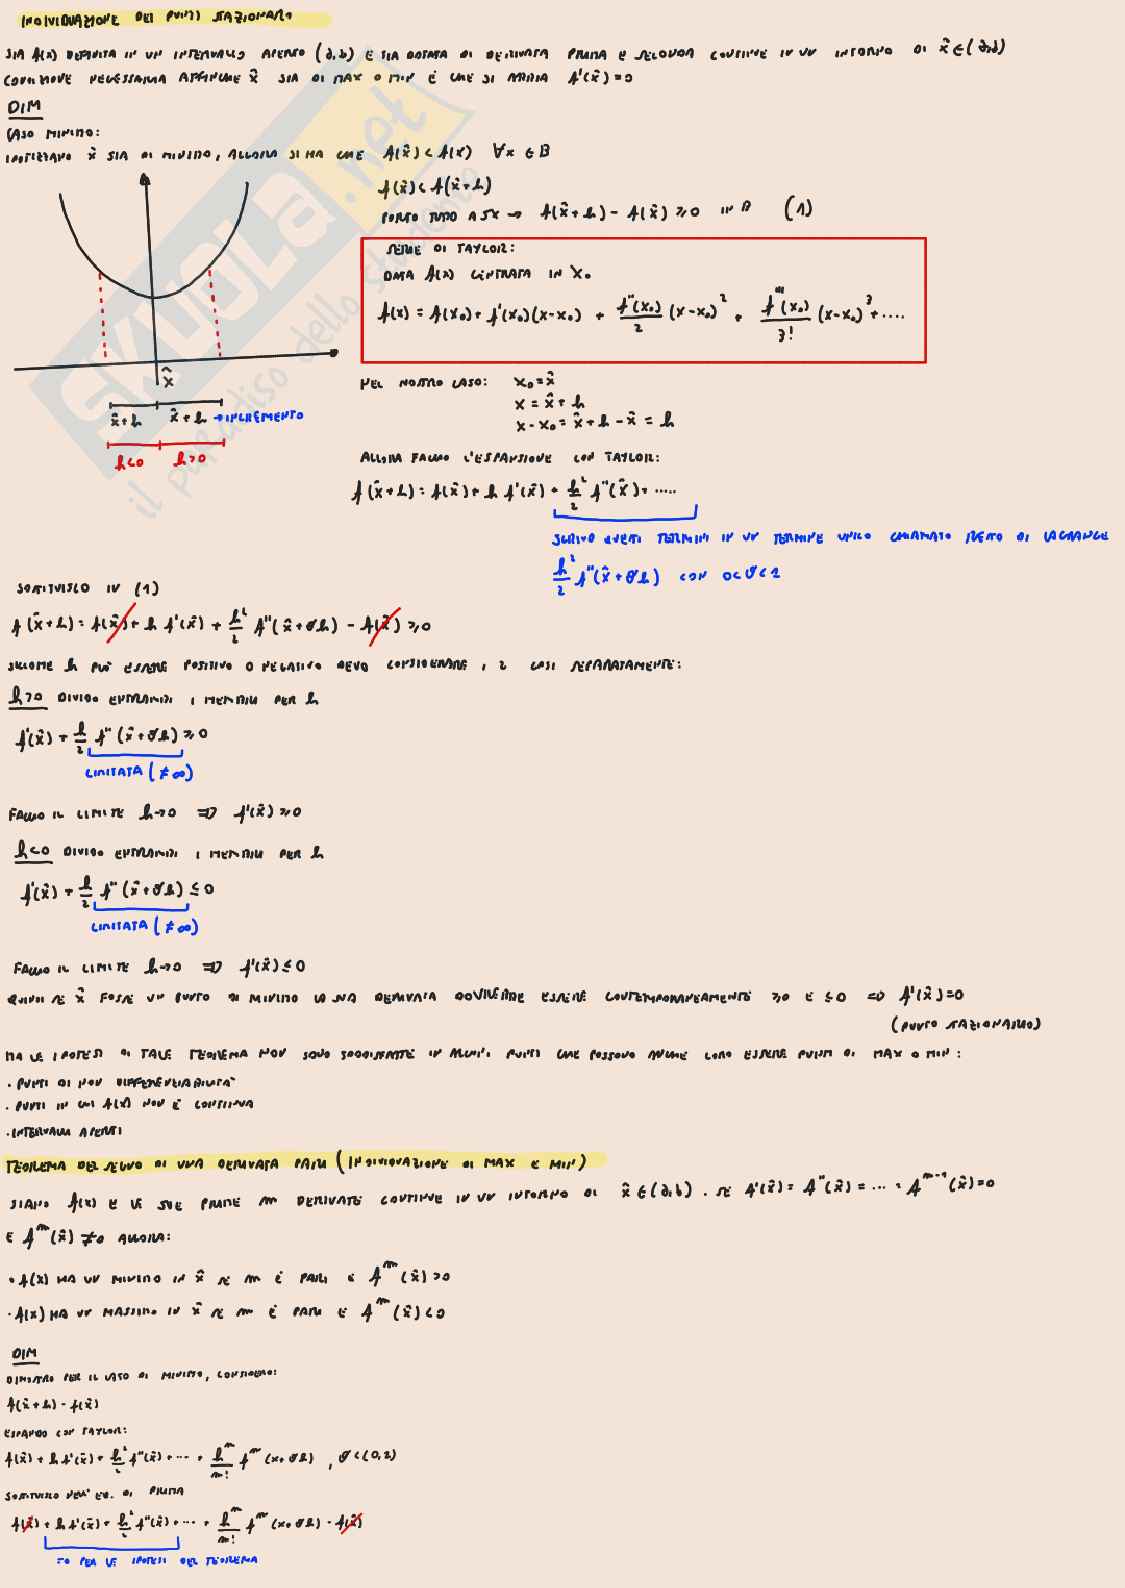 INDIVIDUAZIONE DEI PUNTI STAZIONARI
SIA f(x) DEFINITA IN UN INTERVALLO APERTO (a,b) E SIA DOTATA DI DERIVATA PRIMA E SECONDA CONTINUE IN UN INTORNO DI x̂∈(a,b)
CONDIZIONE NECESSARIA AFFINCHÈ x̂ SIA DI MAX O MIN È CHE SI ABBIA f'(x̂)=0
DIM
CASO MINIMO:
IPOTIZZIAMO x̂ SIA DI MINIMO, ALLORA SI HA CHE f(x̂)<f(x) ∀x∈B
f(x̂)<f(x̂+h)
PORTO TUTTO A SX ⇒ f(x̂+h)-f(x̂)≥0 IN B (1)
SERIE DI TAYLOR:
DATA f(x) CENTRATA IN x₀
f(x) = f(x₀)+f'(x₀)(x-x₀) + f''(x₀)/2 (x-x₀)² + f'''(x₀)/3! (x-x₀)³+....
x̂
x̂+h x̂+h → INCREMENTO
h<0 h>0
NEL NOSTRO CASO: x₀=x̂
x = x̂+h
x-x₀ = x̂+h-x̂ = h
ALLORA FACCIO L'ESPANSIONE CON TAYLOR:
f(x̂+h) = f(x̂)+h f'(x̂)+ h²/2 f''(x̂)+.....
SCRIVO QUESTI TERMINI IN UN TERMINE UNICO CHIAMATO RESTO DI LAGRANGE
h²/2 f''(x̂+θh) CON 0<θ<1
SOSTITUISCO IN (1)
f(x̂+h) = f(x̂)+h f'(x̂)+ h²/2 f''(x̂+θh) - f(x̂) ≥0
SICCOME h PUÒ ESSERE POSITIVO O NEGATIVO DEVO CONSIDERARE I 2 CASI SEPARATAMENTE:
h>0 DIVIDO ENTRAMBI I MEMBRI PER h
f'(x̂)+ h/2 f''(x̂+θh) ≥0
LIMITATA (≠∞)
FACCIO IL LIMITE h→0 ⇒ f'(x̂)≥0
h<0 DIVIDO ENTRAMBI I MEMBRI PER h
f'(x̂)+ h/2 f''(x̂+θh) ≤0
LIMITATA (≠∞)
FACCIO IL LIMITE h→0 ⇒ f'(x̂)≤0
QUINDI SE x̂ FOSSE UN PUNTO DI MINIMO LA SUA DERIVATA DOVREBBE ESSERE CONTEMPORANEAMENTE ≥0 E ≤0 ⇒ f'(x̂)=0
(PUNTO STAZIONARIO)
MA LE IPOTESI DI TALE TEOREMA NON SONO SODDISFATTE IN ALCUNI PUNTI CHE POSSONO ANCHE LORO ESSERE PUNTI DI MAX O MIN:
· PUNTI DI NON DIFFERENZIABILITÀ
· PUNTI IN CUI f(x) NON È CONTINUA
· INTERVALLI APERTI
TEOREMA DEL SEGNO DI UNA DERIVATA PARI (INDIVIDUAZIONE DI MAX E MIN)
SIANO f(x) E LE SUE PRIME m DERIVATE CONTINUE IN UN INTORNO DI x̂∈(a,b). SE f'(x̂)=f''(x̂)=...=f^{m-1}(x̂)=0
E f^m(x̂)≠0 ALLORA:
· f(x) HA UN MINIMO IN x̂ SE m È PARI E f^m(x̂)>0
· f(x) HA UN MASSIMO IN x̂ SE m È PARI E f^m(x̂)<0
DIM
DIMOSTRO PER IL CASO DI MINIMO, CONSIDERO:
f(x̂+h)-f(x̂)
ESPANDO CON TAYLOR:
f(x̂)+h f'(x̂)+ h²/2 f''(x̂)+...+ h^m/m! f^m (x+θh) , θ<(0,1)
SOSTITUISCO NELL'EQ. DI PRIMA
f(x̂)+h f'(x̂)+ h²/2 f''(x̂)+...+ h^m/m! f^m (x+θh) - f(x̂)
=0 PER LE IPOTESI DEL TEOREMA
SKUOLA.net
il paradiso dello studente